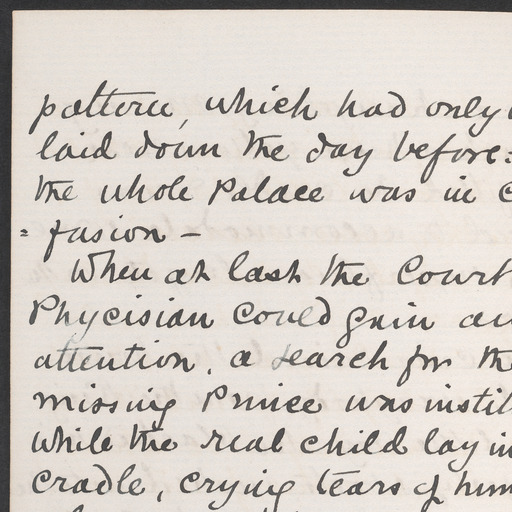 pattern, which had only
laid down the day before:
the whole Palace was in c
= fusion –
When at last the Court
Phycisian could gain an
attention, a search for the
missing Prince was instit
while the real child lay in
cradle, crying tears of hum